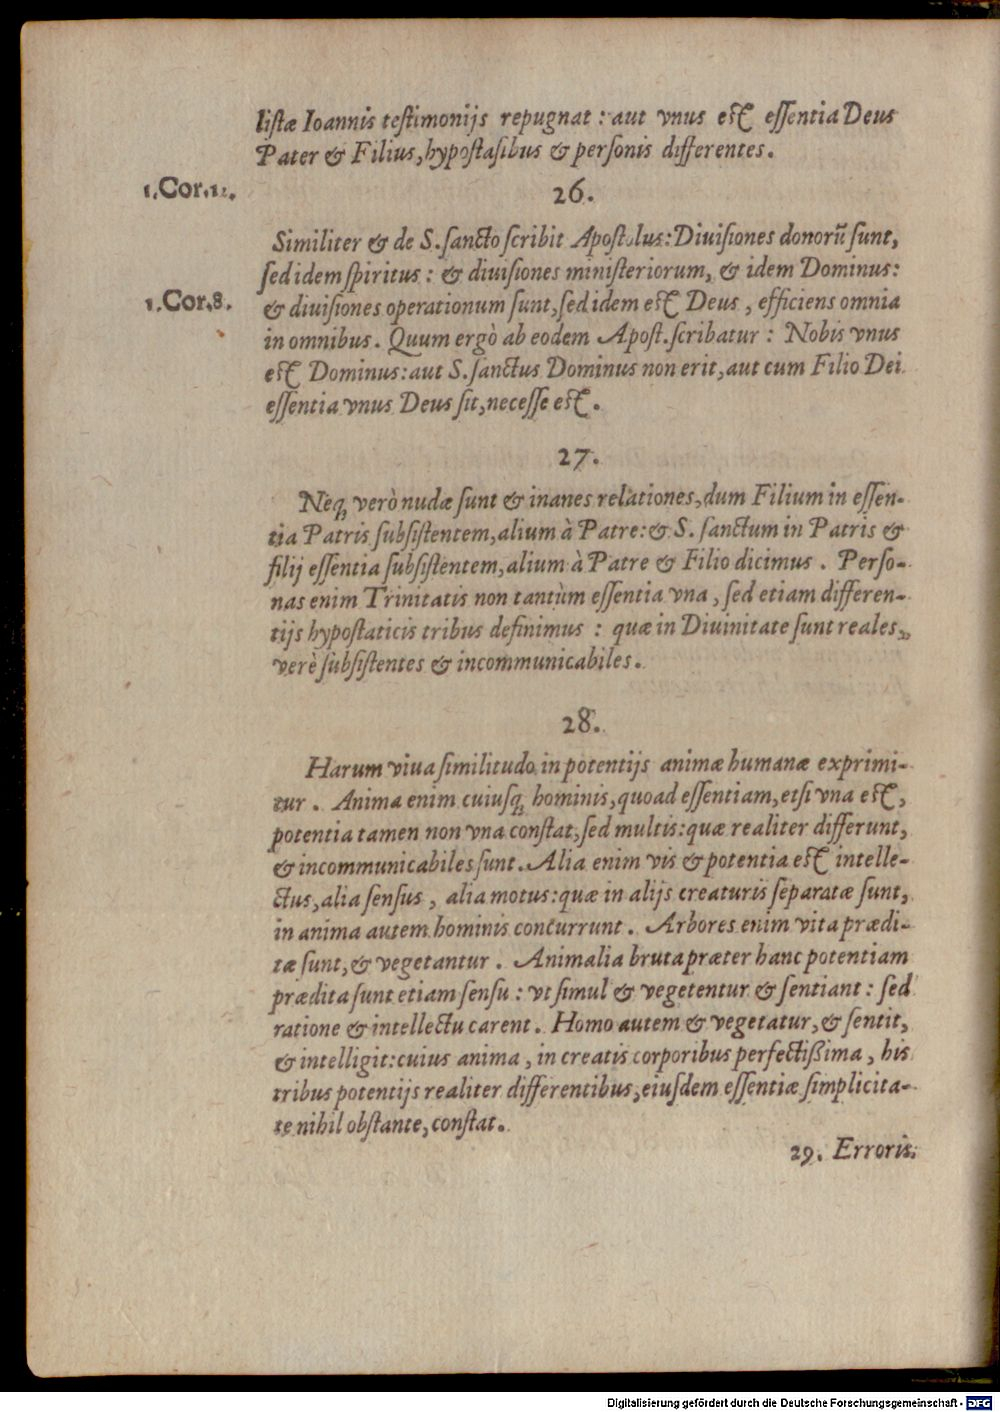 listæ Ioannis testimonijs repugnat: aut vnus est essentia Deus
Pater & Filius, hypostasibus & personis differentes.
1.Cor.12.
26.
Similiter & de S. sancto scribit Apostolus: Diuisiones donorũ sunt,
sed idem spiritus: & diuisiones ministeriorum, & idem Dominus:
1.Cor.8.
& diuisiones operationum sunt, sed idem est Deus, efficiens omnia
in omnibus. Quum ergò ab eodem Apost. scribatur: Nobis vnus
est Dominus: aut S. sanctus Dominus non erit, aut cum Filio Dei
essentia vnus Deus sit, necesse est.
27.
Neq; verò nudæ sunt & inanes relationes, dum Filium in essen-
tia Patris subsistentem, alium à Patre: & S. sanctum in Patris &
filij essentia subsistentem, alium à Patre & Filio dicimus. Perso-
nas enim Trinitatis non tantùm essentia vna, sed etiam differen-
tijs hypostaticis tribus definimus: quæ in Diuinitate sunt reales,
verè subsistentes & incommunicabiles.
28.
Harum viua similitudo in potentijs animæ humanæ exprimi-
tur. Anima enim cuiusq; hominis, quoad essentiam, etsi vna est,
potentia tamen non vna constat, sed multis: quæ realiter differunt,
& incommunicabiles sunt. Alia enim vis & potentia est intelle-
ctus, alia sensus, alia motus: quæ in alijs creaturis separatæ sunt,
in anima autem hominis concurrunt. Arbores enim vita prædi-
tæ sunt, & vegetantur. Animalia bruta præter hanc potentiam
prædita sunt etiam sensu: vt simul & vegetentur & sentiant: sed
ratione & intellectu carent. Homo autem & vegetatur, & sentit,
& intelligit: cuius anima, in creatis corporibus perfectißima, his
tribus potentijs realiter differentibus, eiusdem essentiæ simplicita-
te nihil obstante, constat.
29. Erroris.
Digitalisierung gefördert durch die Deutsche Forschungsgemeinschaft - DFG